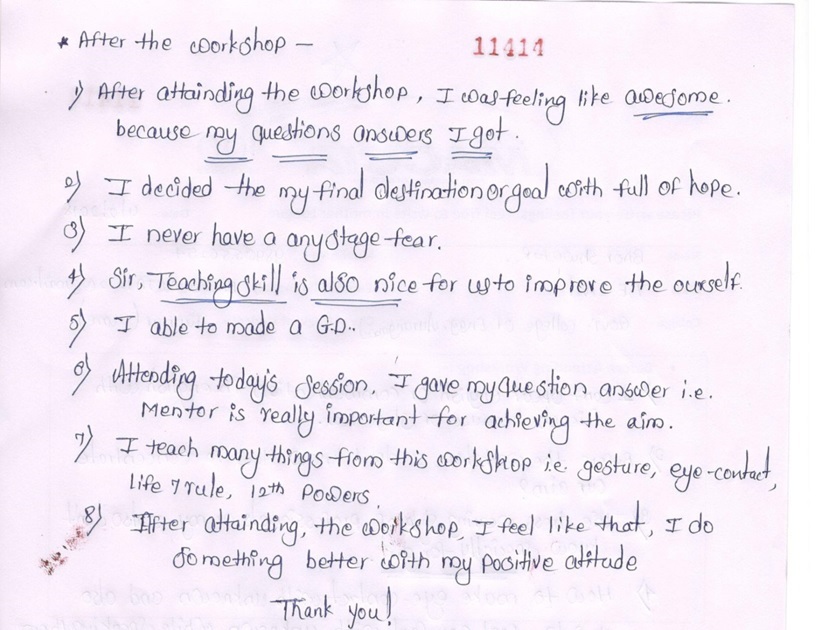 * After the workshop –
11414
1) After attainding the workshop, I was feeling like awesome.
because my questions answers I got.
2) I decided the my final destination or goal with full of hope.
3) I never have a any stage-fear.
4) Sir, Teaching skill is also nice for us to improve the ourself.
5) I able to made a G.D..
6) Attending today's session, I gave my question answer i.e.
Mentor is really important for achieving the aim.
7) I teach many things from this workshop i.e. gesture, eye-contact,
life 7 rule, 12th Powers.
8) After attainding, the workshop, I feel like that, I do
something better with my positive atitude
Thank you!